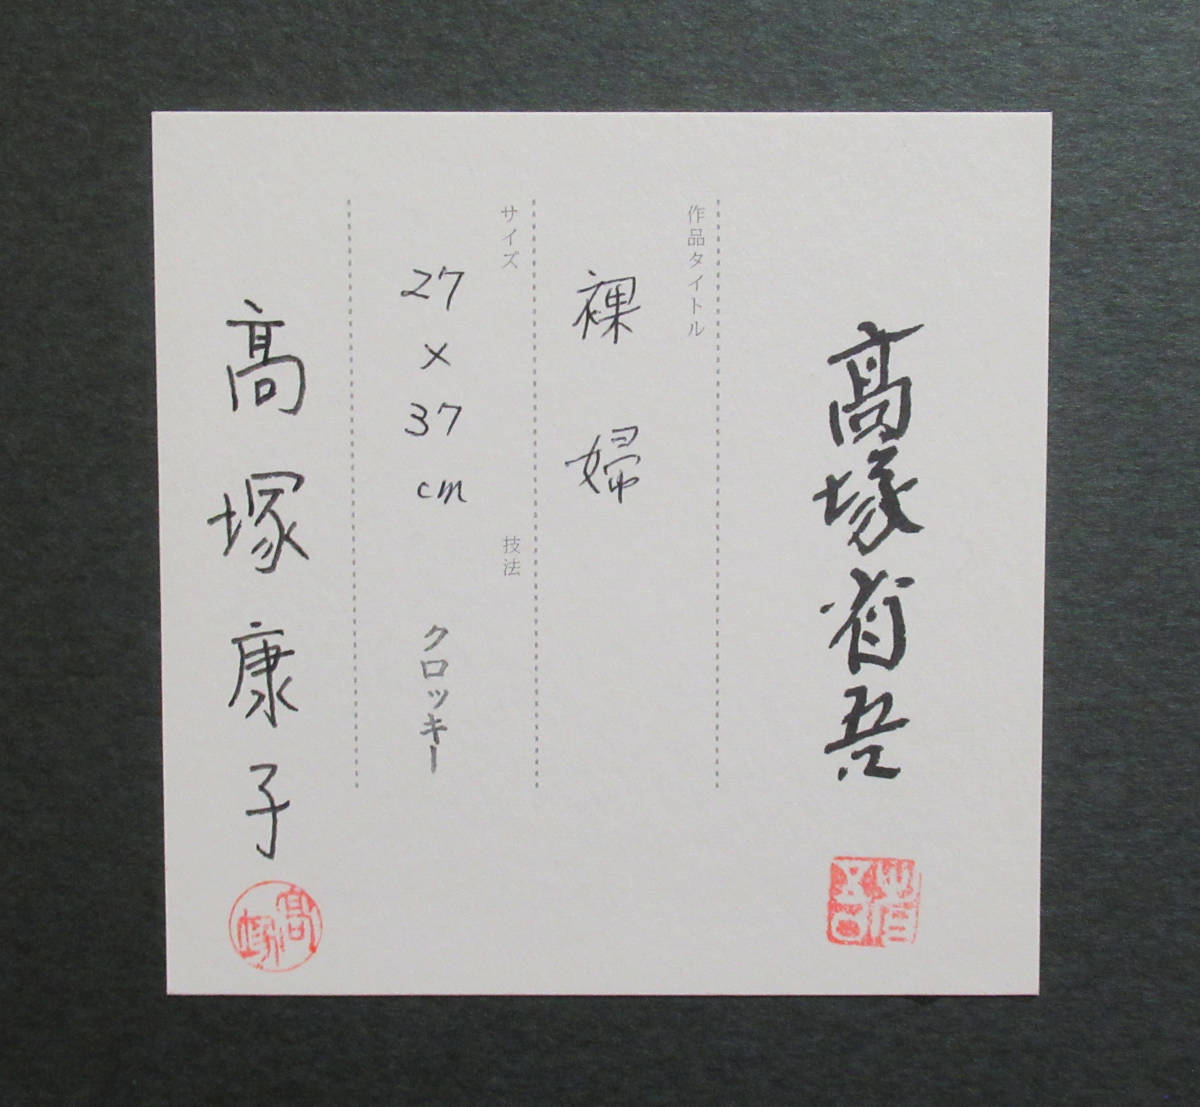 髙塚省吾
省吾
作品タイトル
裸婦
サイズ
27×37cm
技法
クロッキー
髙塚康子
髙塚